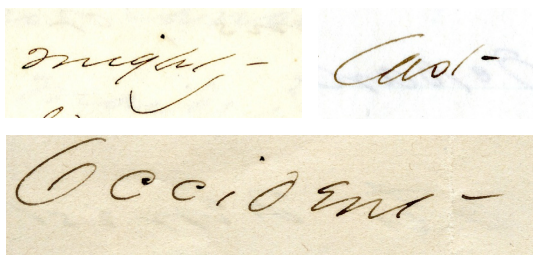 mighty - Cast -
Occident -